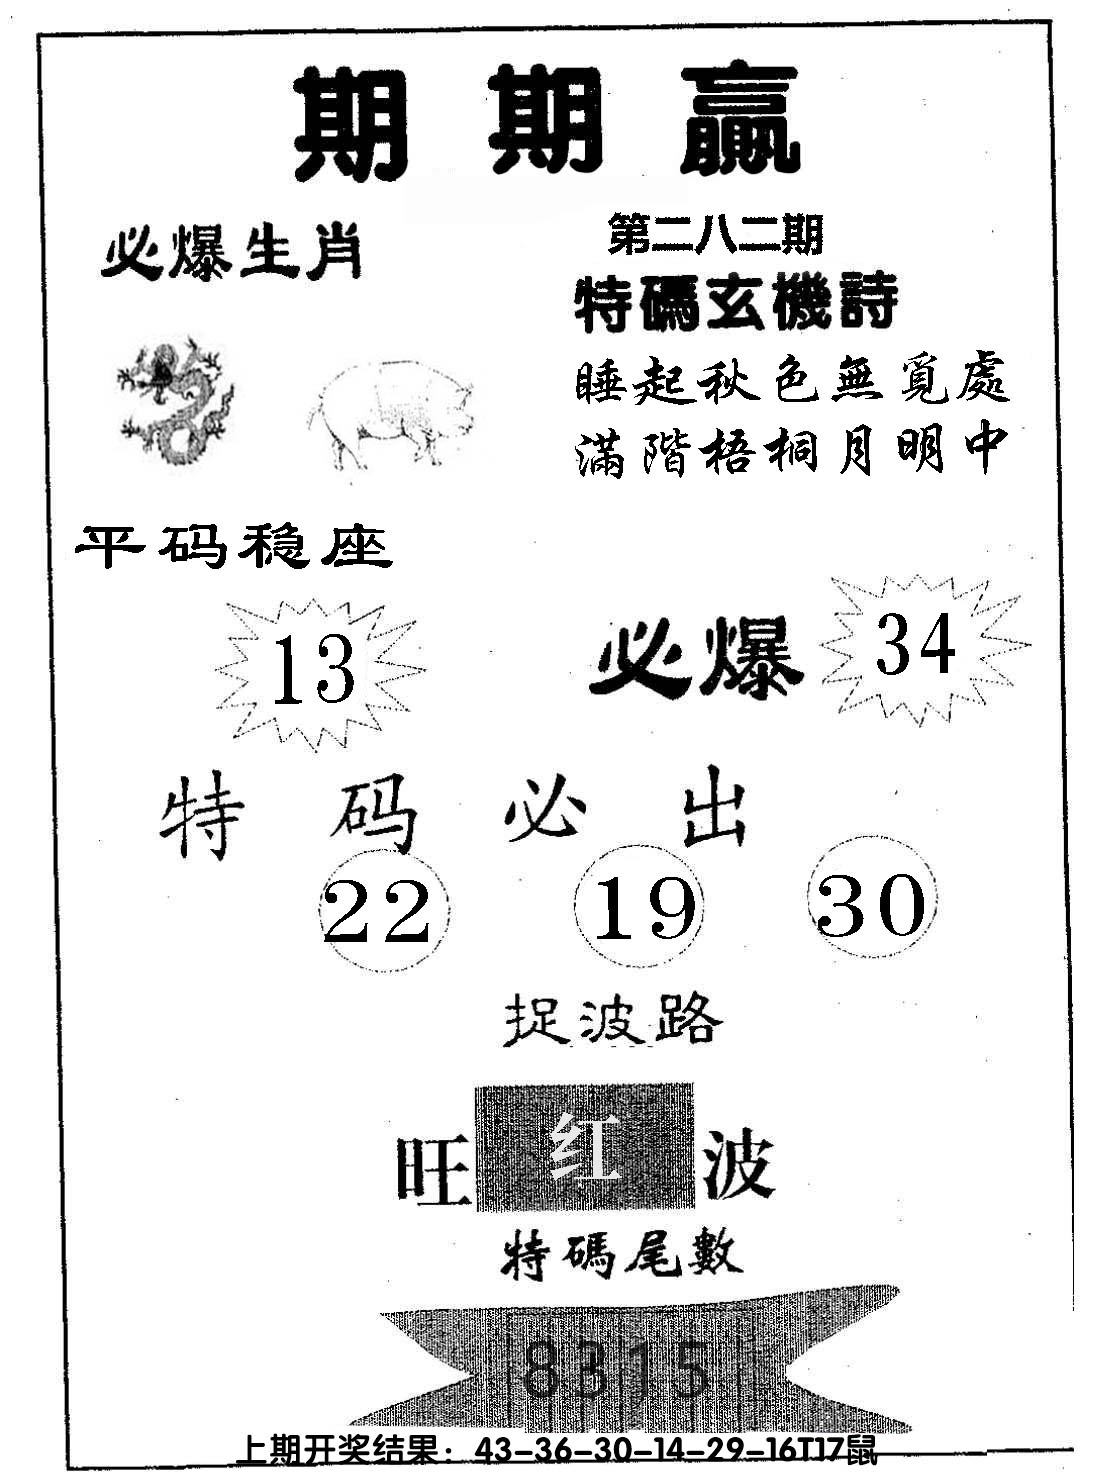 期期贏
必爆生肖
第二八二期
特碼玄機詩
睡起秋色無覓處
滿階梧桐月明中
平码稳座
13
必爆
34
特码必出
22 19 30
捉波路
旺红波
特碼尾數
8315
上期开奖结果：43-36-30-14-29-16T17鼠